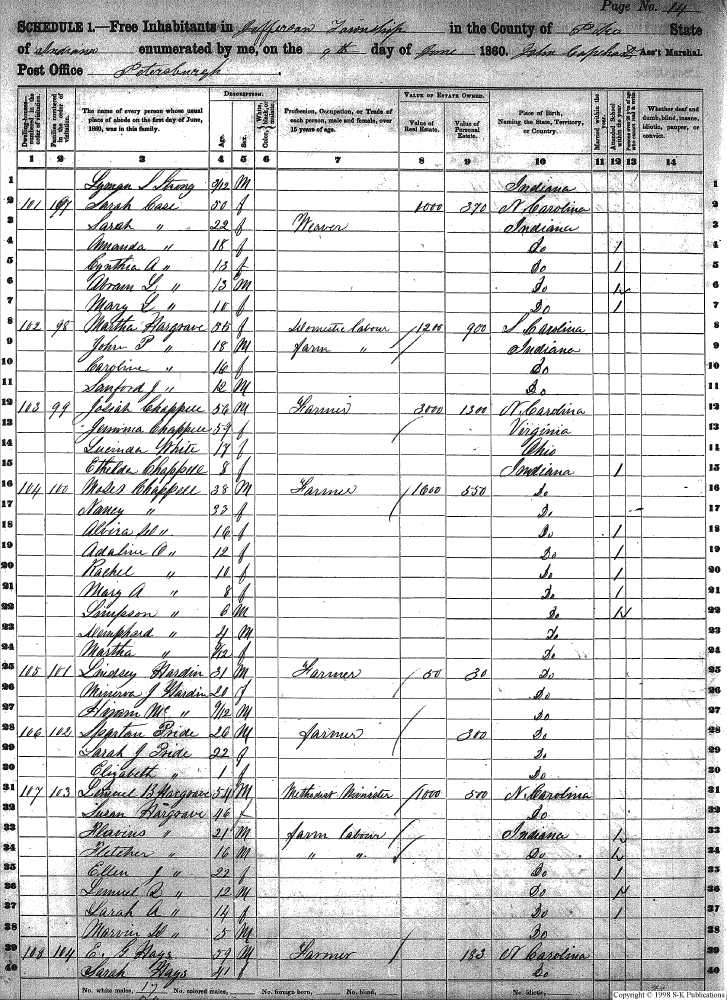 Page No. 14
SCHEDULE 1.—Free Inhabitants in Jefferson Township in the County of Pike State
of Indiana enumerated by me, on the 9th day of June 1860. John Ass't Marshal.
Post Office Petersburgh
DESCRIPTION. VALUE OF ESTATE OWNED.
Dwelling-houses—numbered in the order of visitation. Families numbered in the order of visitation. The name of every person whose usual place of abode on the first day of June, 1860, was in this family. Age. Sex. Color, Profession, Occupation, or Trade of each person, male and female, over 15 years of age. Value of Real Estate. Value of Personal Estate. Place of Birth, Naming the State, Territory, or Country. Married within the year. Attended School within the year. Whether deaf and dumb, blind, insane, idiotic, pauper, or convict.
1 2 3 4 5 6 7 8 9 10 11 12 13 14
1 Lyman S Strong 2/12 M Indiana 1
2 101 97 Sarah Case 50 f 1000 370 N Carolina 2
3 Sarah " 22 f Weaver Indiana 3
4 Amanda " 18 f Do 1 4
5 Cynthia A " 13 f Do 1 5
6 Abram L " 13 M Do 6
7 Mary L " 10 f Do 1 7
8 102 98 Martha Hargrave 55 f Domestic labour 1200 900 S Carolina 8
9 John P " 18 M farm " Indiana 9
10 Caroline " 16 f Do 10
11 Sanford J " 12 M Do 11
12 103 99 Josiah Chappell 56 M Farmer 3000 1300 N Carolina 12
13 Jemima Chappell 59 f Virginia 13
14 Lucinda White 17 f Ohio 14
15 Ethelda Chappell 8 f Indiana 1 15
16 104 100 Moses Chappell 38 M Farmer 1600 550 Do 16
17 Nancy " 33 f Do 17
18 Alvira " 16 f Do 1 18
19 Adaline " 12 f Do 1 19
20 Rachel " 10 f Do 1 20
21 Mary A " 8 f Do 1 21
22 Simpson " 6 M Do 22
23 " 4 M Do 23
24 Martha " f Do 24
25 105 101 Lindsey Hardin 31 M Farmer 50 30 Do 25
26 Minerva J Hardin 20 f Do 26
27 Hiram Mc " M Do 27
28 106 102 Pride 26 M farmer 300 Do 28
29 Sarah J Pride 22 f Do 29
30 Elizabeth " 1 f Do 30
31 107 103 Lemuel B Hargrave 54 M Methodist Minister 1000 500 N Carolina 31
32 Susan Hargrave 46 f Do 32
33 Flavius " 21 M farm labour Indiana 33
34 Fletcher " 16 M " " Do 34
35 Ellen J " 22 f Do 1 35
36 Lemuel " 12 M Do 36
37 Sarah A " 14 f Do 1 37
38 Marvin " 5 M Do 38
39 108 104 E. G Hays 59 M Farmer 183 N Carolina 39
40 Sarah Hays 41 f Do 40
No. white males, 17 No. colored males, No. foreign born, No. blind, No. idiotic,
Copyright © 1998 S-K Publications